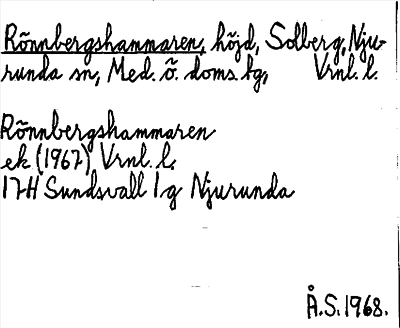 Rönnbergshammaren, höjd, Solberg, Nju-
runda sn, Med. ö. doms. tg, Vrnl. l.
Rönnbergshammaren
ek (1967) Vrnl. l.
17H Sundsvall 1g Njurunda
Å.S. 1968.